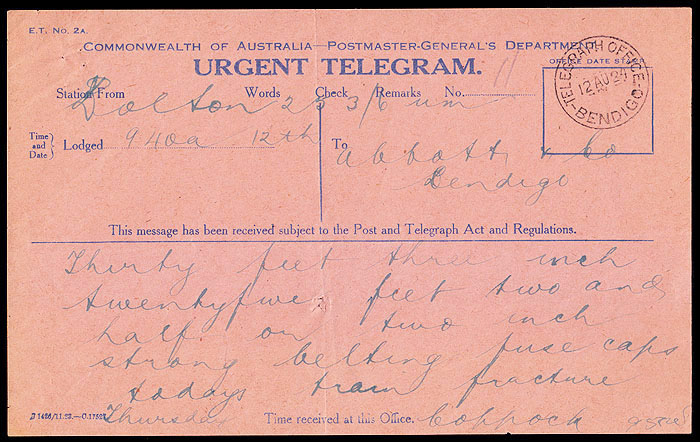 E.T. No. 2A.
COMMONWEALTH OF AUSTRALIA—POSTMASTER-GENERAL'S DEPARTMENT.
URGENT TELEGRAM.
OFFICE DATE STAMP
TELEGRAPH OFFICE
12 AU 24
BENDIGO
Station From Words Check Remarks No. 11
Bolton 25 3/6 um
Time and Date Lodged 940a 12th To
Abbott & Co
Bendigo
This message has been received subject to the Post and Telegraph Act and Regulations.
Thirty feet three inch
twentyfive feet two and
half on two inch
strong belting fuse caps
todays train fracture
Thursday Coppock
Time received at this Office.